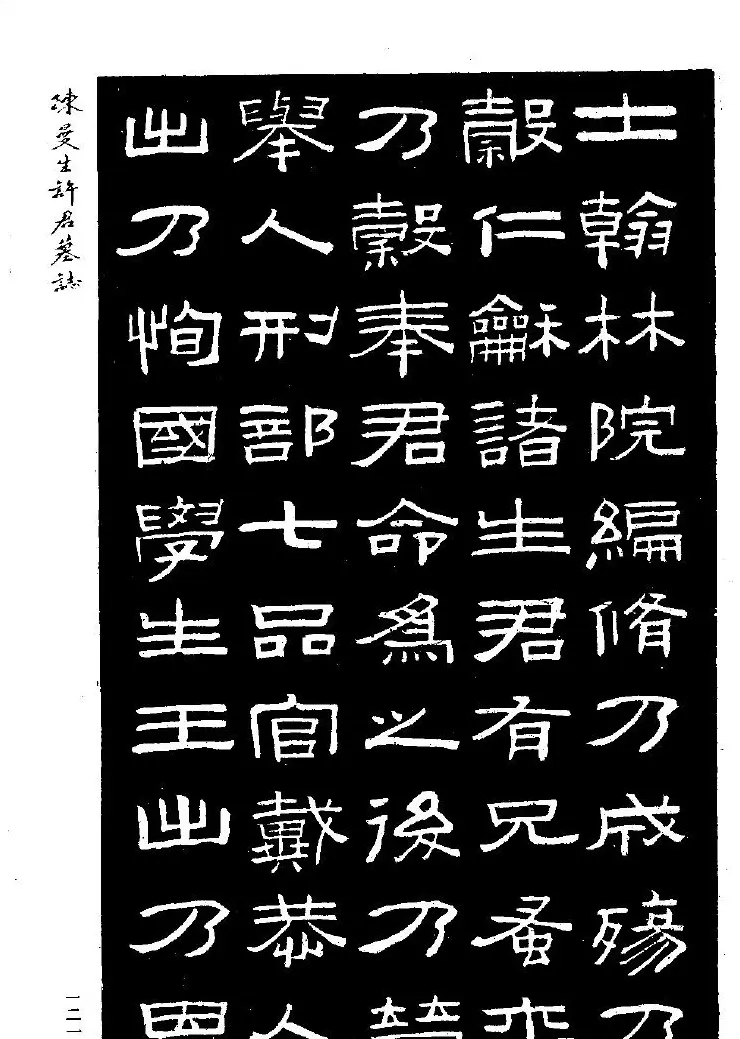 士翰林院編脩乃成殤乃
穀仁龢諸生君有兄蚤
乃穀奉君命爲之後乃
舉人刑部七品官戴恭人
出乃恂國學生王出乃
陳曼生許君墓誌
一二一